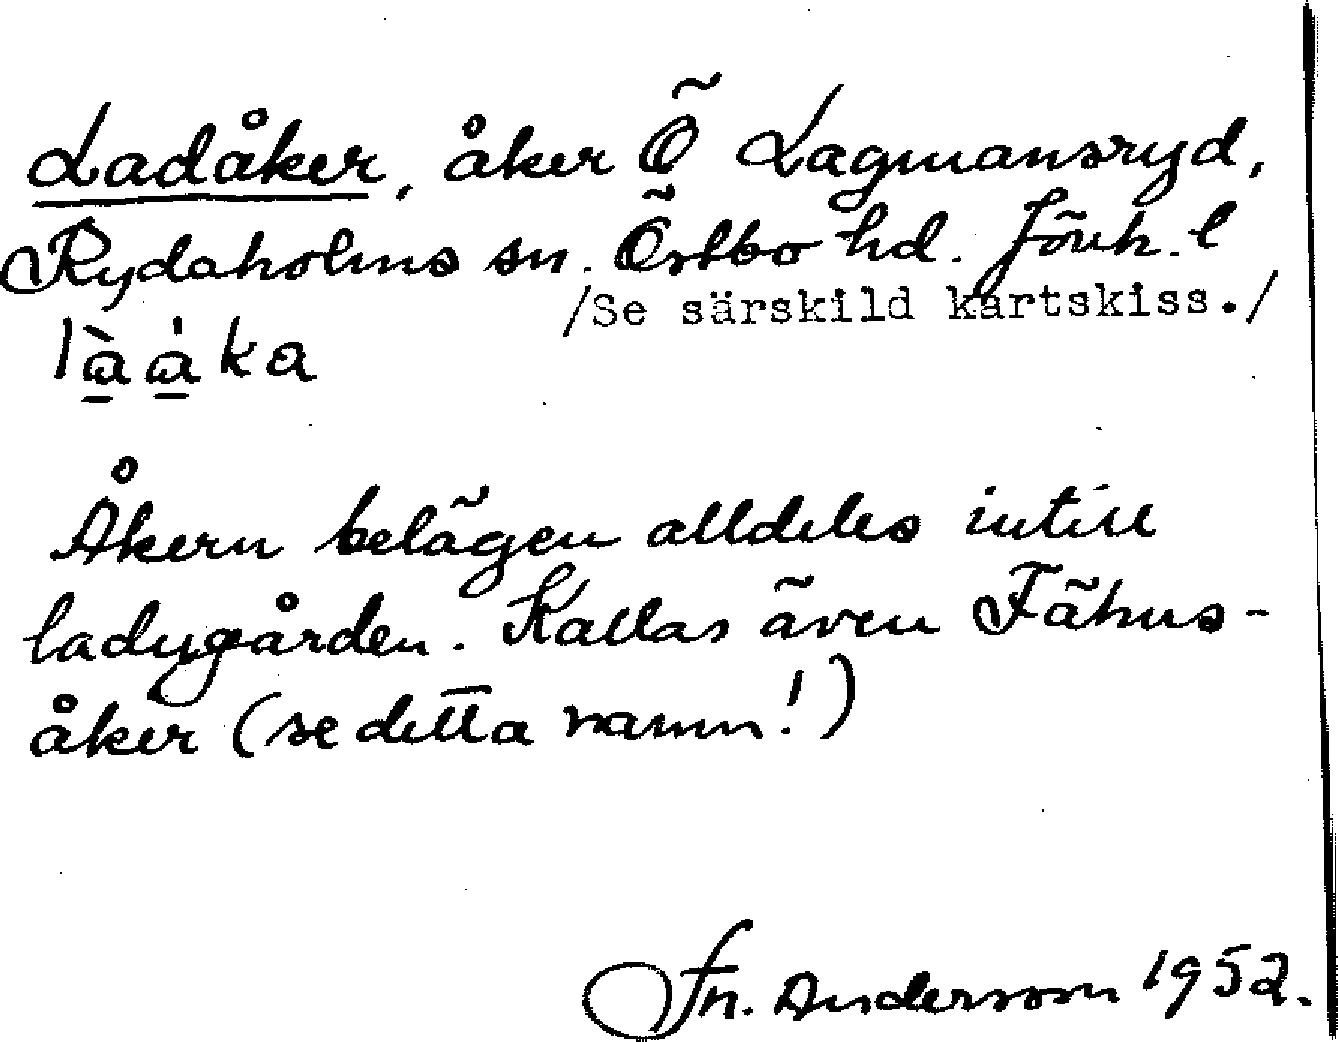 Ladåker, åker Ö Lagmansryd,
Rydaholms sn. Östbo hd. Jönk. l
/Se särskild kartskiss./
làáka
Åkern belägen alldeles intill
ladugården. Kallas även Fähus-
åker (se detta namn!)
Fr. Andersson 1952.